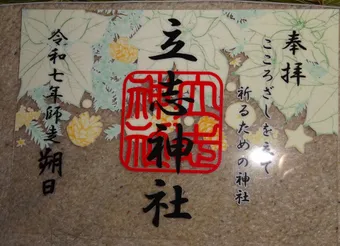 奉拝
こころざしを立て
祈るための神社
立志神社
令和七年師走朔日